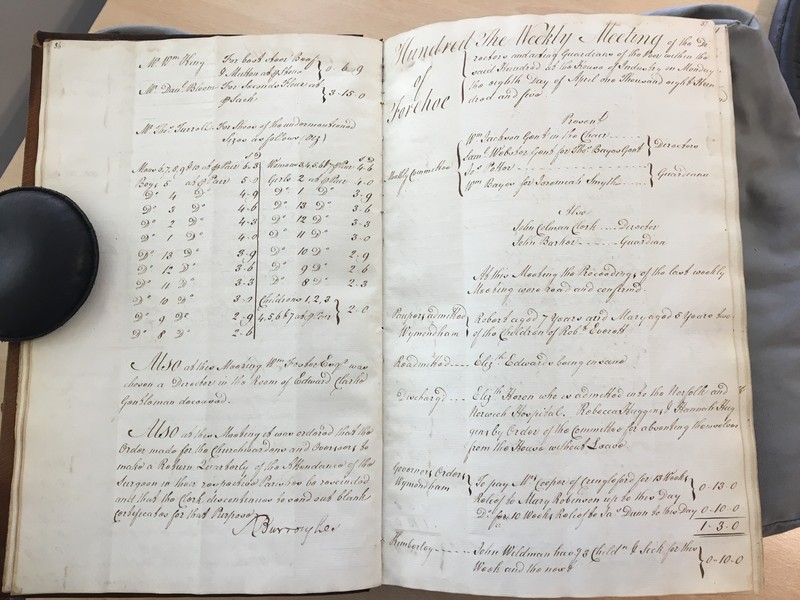 36
Mr. Wm. King For best Steer Beef
& Mutton at Stone 0 - 6 - 9
Mr. Danl. Bloom For Seconds Flour at
Sack 3 - 15 - 0
Mr. Thos. Turrell For Shoes of the undermentioned
Sizes as follows (Viz)
s D s D
Mens 6, 7, 8, 9 & 10 at Pair 6 - 3 Womens 3, 4, 5, 6 & 7 Pair 4 - 6
Boys 5 at Pair 5 - 0 Girls 2 at Pair 4 - 0
Do. 4 Do. 4 - 9 Do. 1 Do. 3 - 9
Do. 3 Do. 4 - 6 Do. 13 Do. 3 - 6
Do. 2 Do. 4 - 3 Do. 12 Do. 3 - 3
Do. 1 Do. 4 - 0 Do. 11 Do. 3 - 0
Do. 13 Do. 3 - 9 Do. 10 Do. 2 - 9
Do. 12 Do. 3 - 6 Do. 9 Do. 2 - 6
Do. 11 Do. 3 - 3 Do. 8 Do. 2 - 3
Do. 10 Do. 3 - 0 Childrens 1, 2, 3
Do. 9 Do. 2 - 9 4, 5, 6 & 7 at Pair 2 - 0
Do. 8 Do. 2 - 6
Also at this Meeting Wm. Foster Esqr. was
chosen a Director in the Room of Edward Clarke
Gentleman deceased.
Also at this Meeting it was ordered that the
Order made for the Churchwardens and Overseers to
make a Return Quarterly of the Attendance of the
Surgeon in their respective Parishes be rescinded
and that the Clerk discontinues to send out blank
Certificates for that Purpose
Burroughes
Hundred
of
Forehoe
The Weekly Meeting of the Di
rectors and acting Guardians of the Poor within the
said Hundred at the House of Industry on Monday
the eighth Day of April one Thousand eight Hun
dred and five
Present
Monthly Committee
Wm. Jackson Gent in the Chair
Saml. Webster Gent for Thos. Bayes Gent
Directors
Wm. Bayes for Jeremiah Smyth
Guardians
Also
John Colman Clerk Director
John Barker Guardian
At this Meeting the Proceedings of the last weekly
Meeting were read and confirmd.
Paupers admitted
Wymondham
Robert aged 7 Years and Mary aged 5 Years two
of the Children of Robt. Everett
Readmitted Elizth. Edwards being insane
Dischargd Elizth. Heron who is admitted into the Norfolk and
Norwich Hospital. Rebecca Huggins & Hannah Hug
gins by Order of the Committee for absenting themselves
from the House without Leave
Governors Order
Wymondham
To pay Mr. Cooper of for 13 Weeks
Relief to Mary Robinson up to this Day 0 - 13 - 0
Do. for 10 Weeks Relief to Jas. Dunn to this Day 0 - 10 - 0
1 - 3 - 0
Kimberley John Wildman has 3 Childn. & Sick for this
Week and the next 0 - 10 - 0